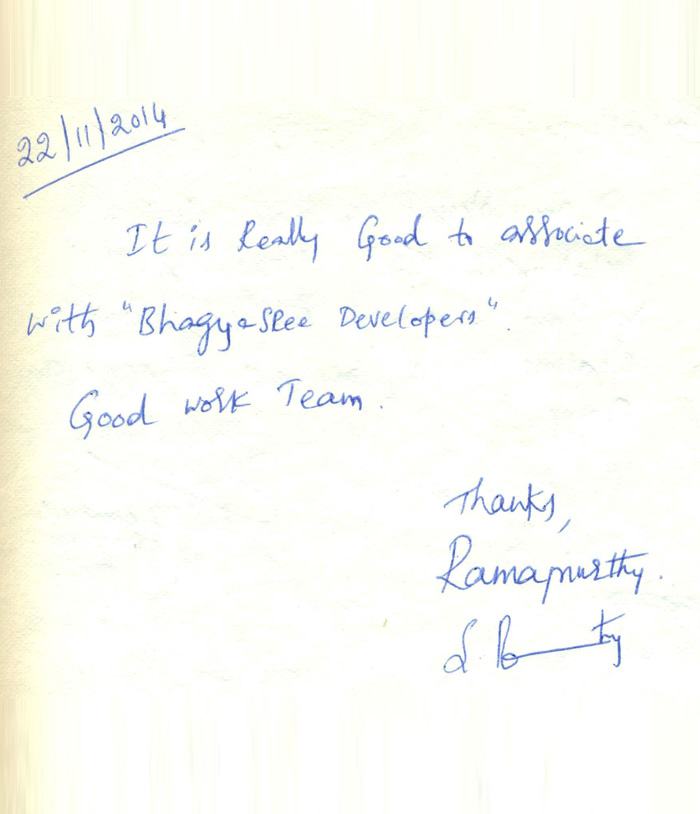 22/11/2014
It is Really Good to associate
with "BhagyaSRee Developers".
Good work Team.
Thanks,
Ramamurthy.